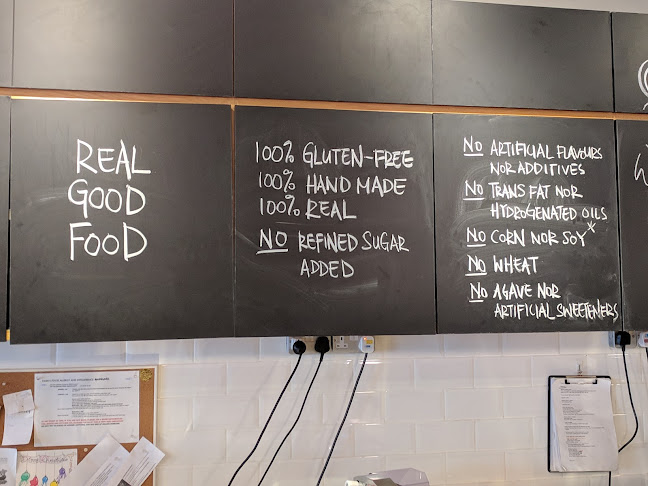 REAL
GOOD
FOOD
100% GLUTEN-FREE
100% HAND MADE
100% REAL
NO REFINED SUGAR
ADDED
NO ARTIFICIAL FLAVOURS
NOR ADDITIVES
NO TRANS FAT NOR
HYDROGENATED OILS
NO CORN NOR SOY*
NO WHEAT
NO AGAVE NOR
ARTIFICIAL SWEETENERS